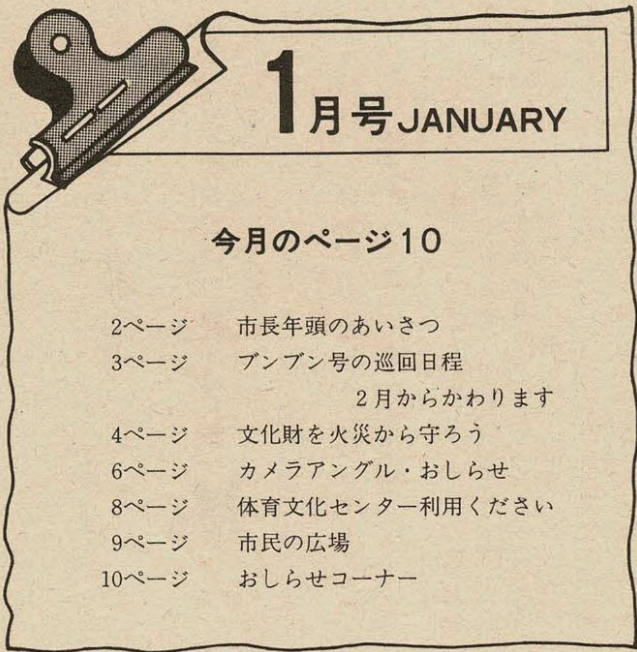 1月号 JANUARY
今月のページ10
2ページ 市長年頭のあいさつ
3ページ ブンブン号の巡回日程
2月からかわります
4ページ 文化財を火災から守ろう
6ページ カメラアングル・おしらせ
8ページ 体育文化センター利用ください
9ページ 市民の広場
10ページ おしらせコーナー